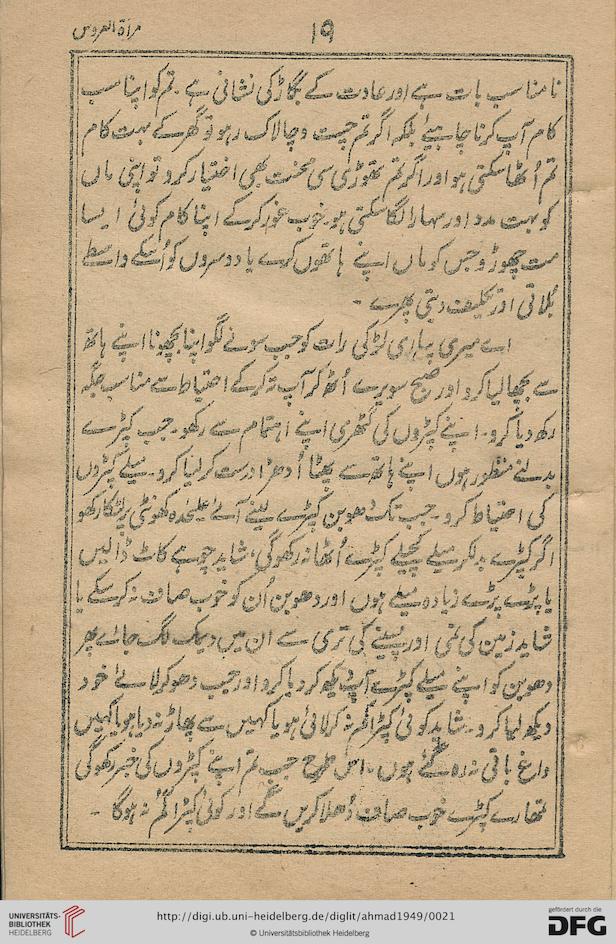 مراۃ العروس
۱۹
نامناسب بات ہے اور عادت کے بگاڑ کی نشانی ہے ۔ تم کو اپنا سب
کام آپ کرنا چاہیئے بلکہ اگر تم چست و چالاک رہو تو گھر کے بہت کام
تم اُٹھا سکتی ہو اور اگر تم تھوڑی سی محنت بھی اختیار کرو تو اپنی ماں
کو بہت مدد اور سہارا لگا سکتی ہو ۔ خوب غور کرکے اپنا کام کوئی ایسا
مت چھوڑو جس کو ماں اپنے ہاتھوں کرے یا دوسروں کو اُسکے واسطے
بُلاتی اور تکلیف دیتی پھرے ۔
اے میری پیاری لڑکی رات کو جب سونے لگو اپنا بچھونا اپنے ہاتھ
سے بچھا لیا کرو اور صبح سویرے اُٹھ کر آپ تہ کرکے احتیاط سے مناسب جگہ
رکھ دیا کرو ۔ اپنے کپڑوں کی گٹھری اپنے اہتمام سے رکھو ۔ جب کپڑے
بدلنے منظور ہوں اپنے ہاتھ سے پھٹا اُدھڑا درست کر لیا کرو ۔ میلے کپڑوں
کی احتیاط کرو ۔ جب تک دھوبن کپڑے لینے آئے علیحدہ کھونٹی پر لٹکا رکھو
اگر کپڑے بدلکر میلے کچیلے کپڑے اُٹھا نہ رکھوگی، شاید چوہے کاٹ ڈالیں
یا پڑے پڑے زیادہ میلے ہوں اور دھوبن اُن کو خوب صاف نہ کرسکے یا
شاید زمین کی نمی اور پسینے کی تری سے ان میں دیمک لگ جائے پھر
دھوبن کو اپنے میلے کپڑے آپ دیکھ کر دیا کرو اور جب دھو کر لائے خود
دیکھ لیا کرو ۔ شاید کوئی کپڑا گم نہ کر لائی ہو یا کہیں سے پھاڑ نہ دیا ہو یا کہیں
داغ باقی نہ رہ گئے ہوں ۔ اس طرح جب تم اپنے کپڑوں کی خبر رکھوگی
تمھارے کپڑے خوب صاف دُھلا کریں گے اور کوئی کپڑا گم نہ ہوگا ۔
UNIVERSITÄTS-
BIBLIOTHEK
HEIDELBERG
http://digi.ub.uni-heidelberg.de/diglit/ahmad1949/0021
© Universitätsbibliothek Heidelberg
gefördert durch die
DFG